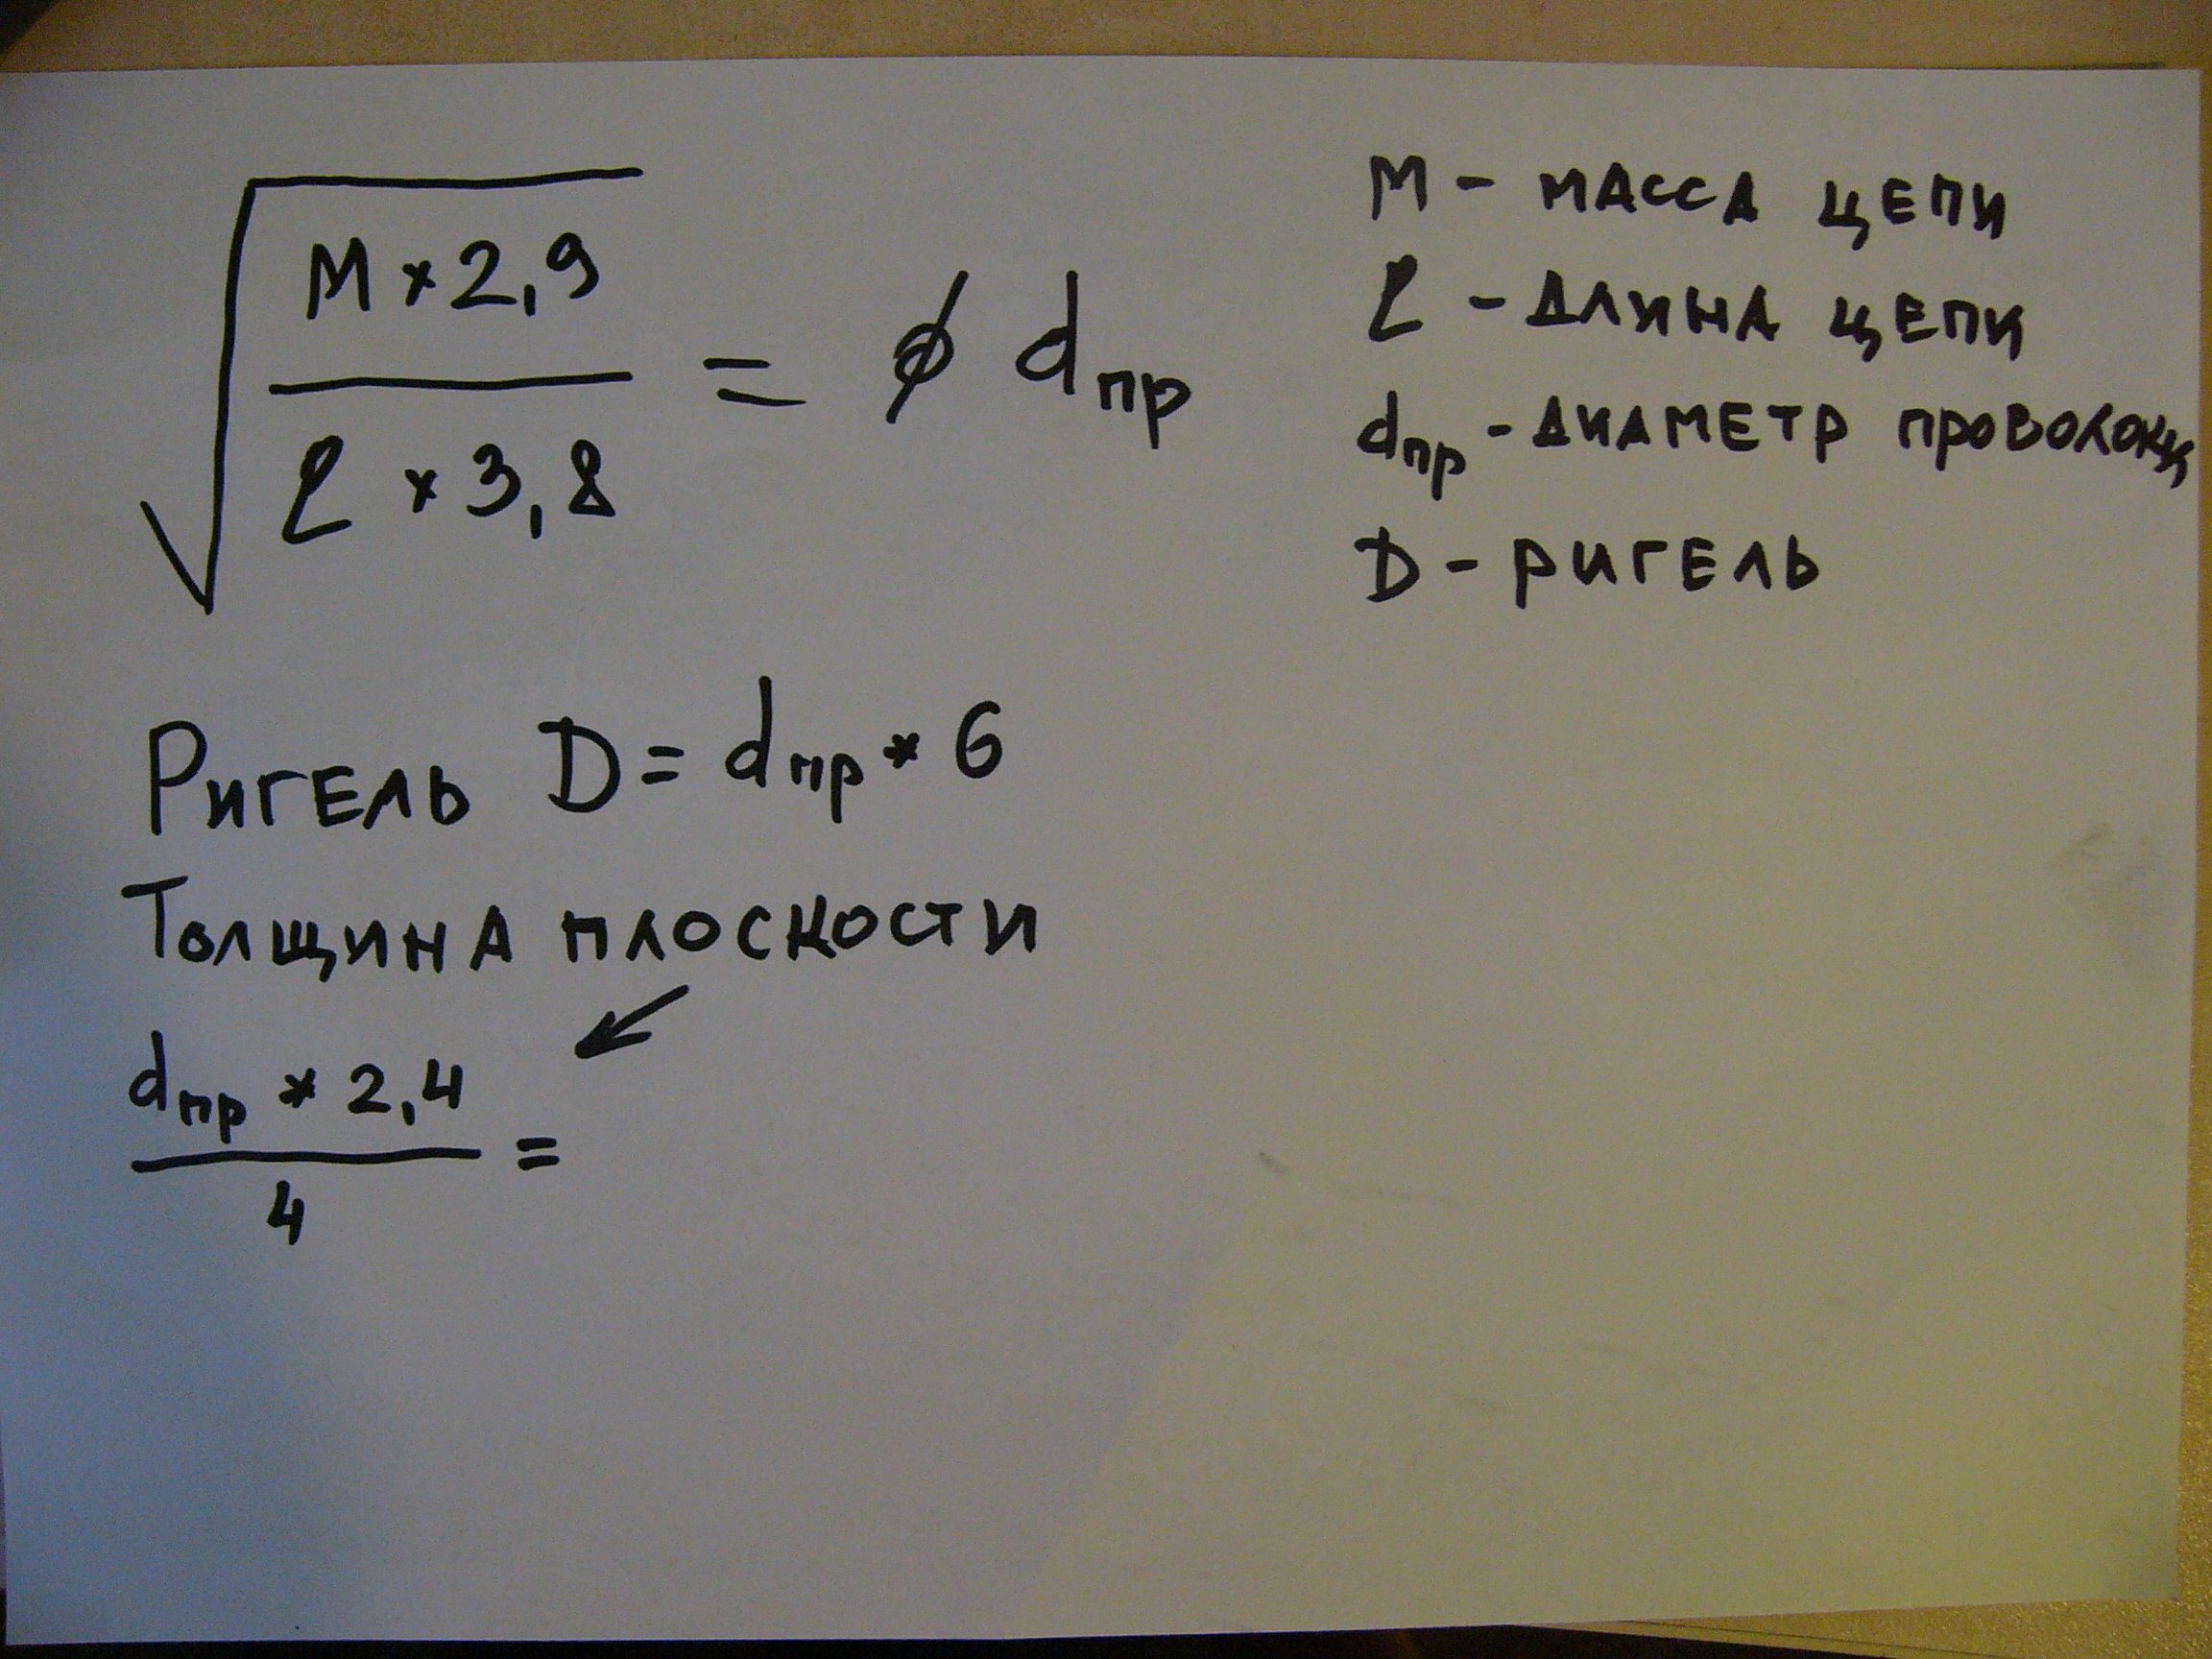 √(M × 2,9 / ℓ × 3,8) = ⌀ dпр
M - МАССА ЦЕПИ
ℓ - ДЛИНА ЦЕПИ
dпр - ДИАМЕТР ПРОВОЛОКИ
D - РИГЕЛЬ
РИГЕЛЬ D = dпр * 6
ТОЛЩИНА ПЛОСКОСТИ
dпр * 2,4 / 4 =